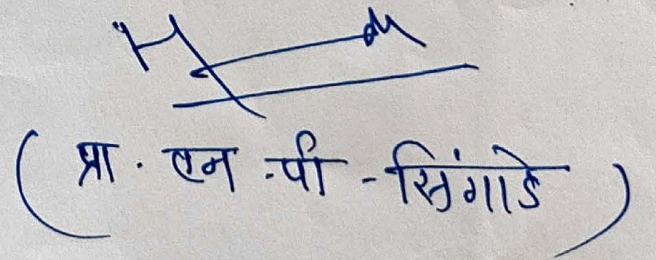 ( प्रा. एन.पी-सिंगाडे )